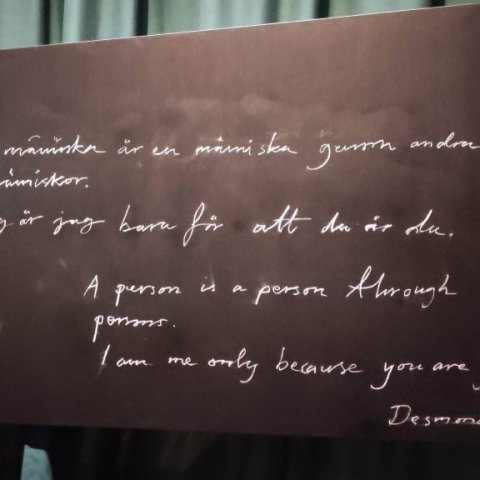 människa är en människa genom andra
människor.
jag är jag bara för att du är du.
A person is a person through
persons.
I am me only because you are
Desmond